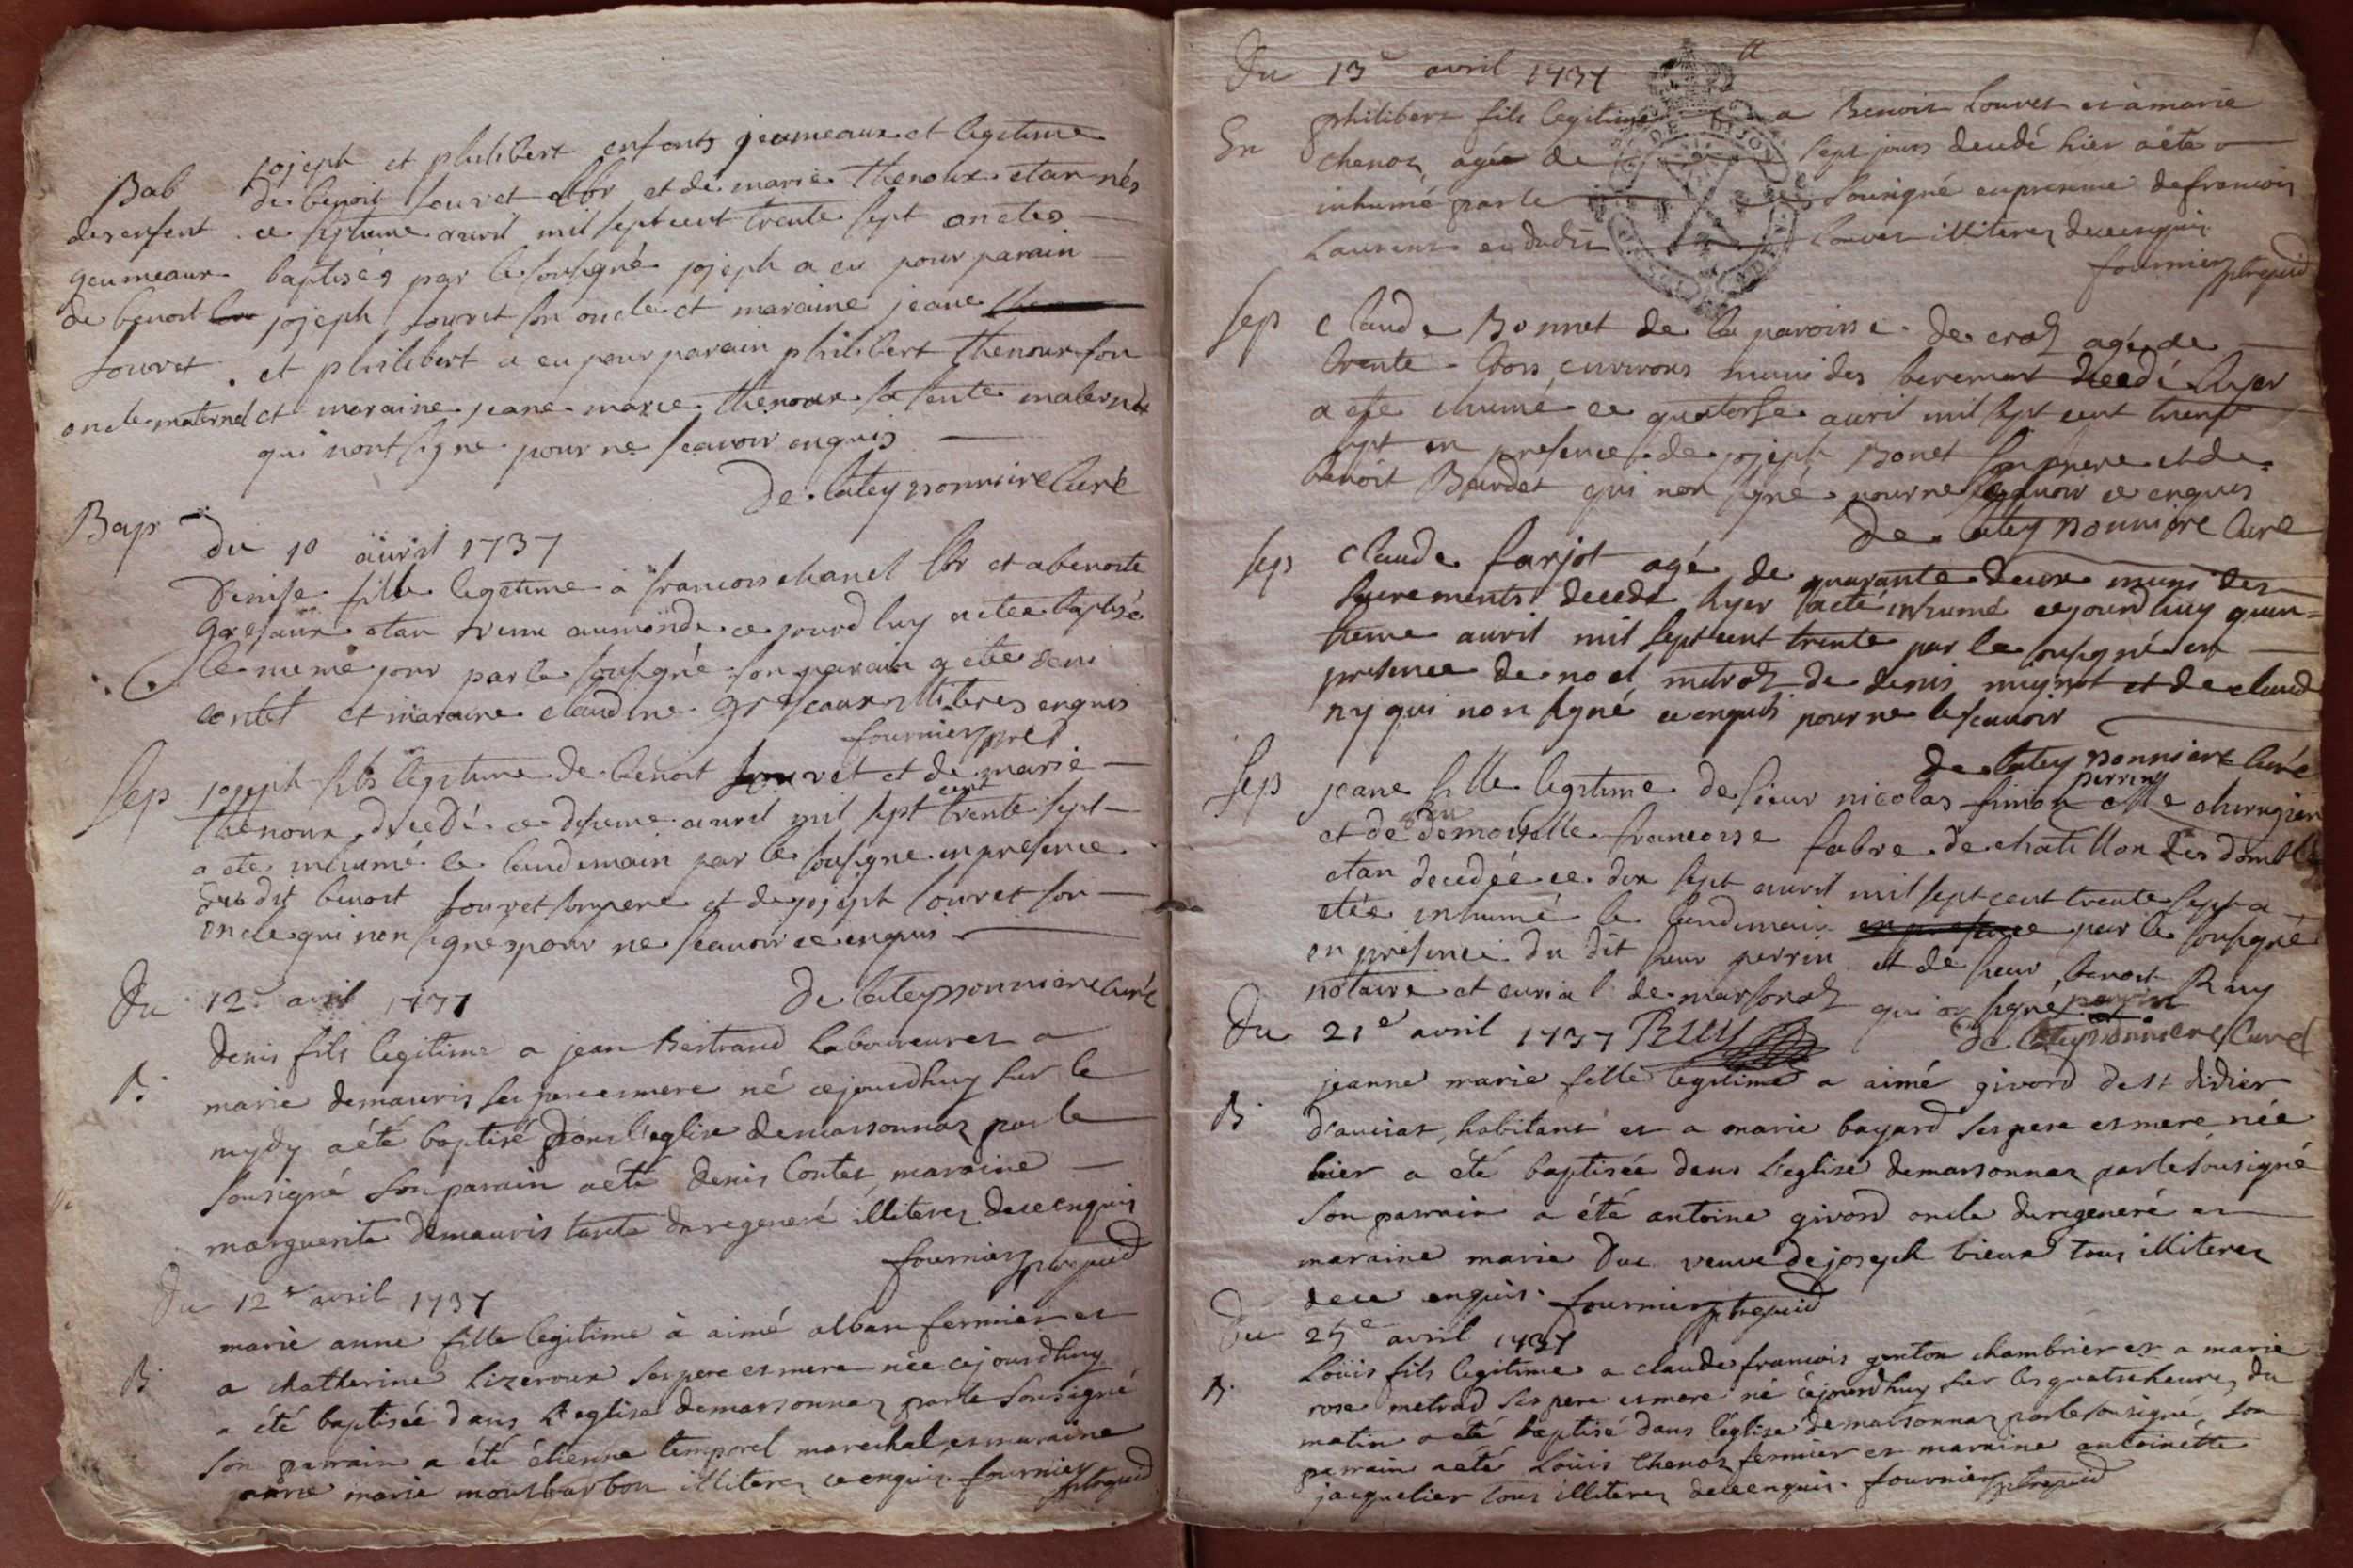 joseph et philibert enfents jeumeaux et legitime
Bab de benoit Louvet et de marie thenoux etan nés
des enfent ce septieme avril mil sept cent trente sept on etes
geumeaux baptisés par le sousigné joseph a eu pour parain
de benoit joseph Louvet son oncle et maraine jeane
Louvet et philibert a eu pour parain philibert thenoux son
oncle maternel et maraine jeane marie thenoux sa tente maternele
qui nont signe pour ne scavoir enquis
de lateyssonniere Curé
Bap
du 10 avril 1737
Denise fille legitime a francois chanel et a benoite
greseaux etan venu au monde ce jourd'huy a etee baptisé
le meme jour par le sousigné son parain a ette deni
contet et maraine claudine greseaux illiteres enquis
fournier
Sep joseph fils legitime de benoit Louvet et de marie
cent
thenoux decedé ce disieme avril mil sept trente sept
a ete inhumé le landemain par le sousigne en presence
du dit benoit Louvet son pere et de joseph Louvet son
oncle qui non signés pour ne scavoir ce enquis
de lateyssonniere Curé
Du 12e avril 1737
denis fils legitime a jean Bertrand Laboureur et a
B. marie demauris ses pere et mere né cejourdhuy sur le
mydy a été baptisé dans l'eglise demarsonnaz par le
sousigné son parain a été denis Contet, maraine
marguerite demauris tante du regeneré illiterez de ce enquis
fournier
Du 12e avril 1737
marie anne fille legitime à aimé alban fermier et
B a chatherine Lizeroux ses pere et mere née cejourdhuy
a été baptisée dans l'eglise demarsonnaz par le sousigné
son parrain a été étienne temporel marechal, et maraine
marie montbarbon illiterez ce enquis. fournier
Du 13e avril 1737
philibert fils legitime a Benoit Louvet et à marie
En chenoz, agée de sept jours decedé hier a été
inhumé par le sousigné en presence de francois
Laurent et dudit Louvet illiterez de ce enquis
fournier
Sep Claude Bonnet de la paroisse de cras agé de
trente trois environs muni des sacrement decedé hyer
a ete inhumé ce quatorse avril mil sept cent trente
sept en presence de joseph Bonet son frere et de
benoit Baudet qui non signé pour ne scavoir ce enquis
de lateyssonniere Curé
Sep Claude farjot agé de quarante deux muni des
sacrements decedé hyer a eté inhumé ce jourd huy quin-
sieme avril mil sept cent trente par le sousigné en
presence de noel metraz de denis mignot et de claude
ny qui non signé ce enquis pour ne le scavoir
de lateyssonniere Curé
perrin
Sep jeane fille legitime de sieur nicolas simon chirugien
et de demoiselle francoise fabre de chatillon les dombes
etan decedée ce dix sept avril mil sept cent trente sept a
etée inhumé le landemain en presence par le sousigné
en presence du dit sieur perrin et de sieur benoit Ruy
notaire et curial de marsonas qui on signé
Du 21e avril 1737 Ruy de lateyssonniere Curé
jeanne marie fille legitime a aimé givord de st didier
B. d'auciat, habitant et a marie bayard ses pere et mere née
hier a été baptisée dans l'eglise demarsonnaz par le sousigné
son parrain a été antoine givord oncle du regeneré et
maraine marie Duc veuve de joseph vieux tous illiterez
de ce enquis. fournier
Du 25e avril 1737
Loüis fils legitime a claude francois genton chambrier et a marie
B. rose metrad ses pere et mere né cejourdhuy sur les quatre heures du
matin a été baptisé dans l'église demarsonnaz par le sousigné, son
parrain a été Loüis thenoz fermier et marraine antoinette
jacquelier tous illiterez de ce enquis. fournier